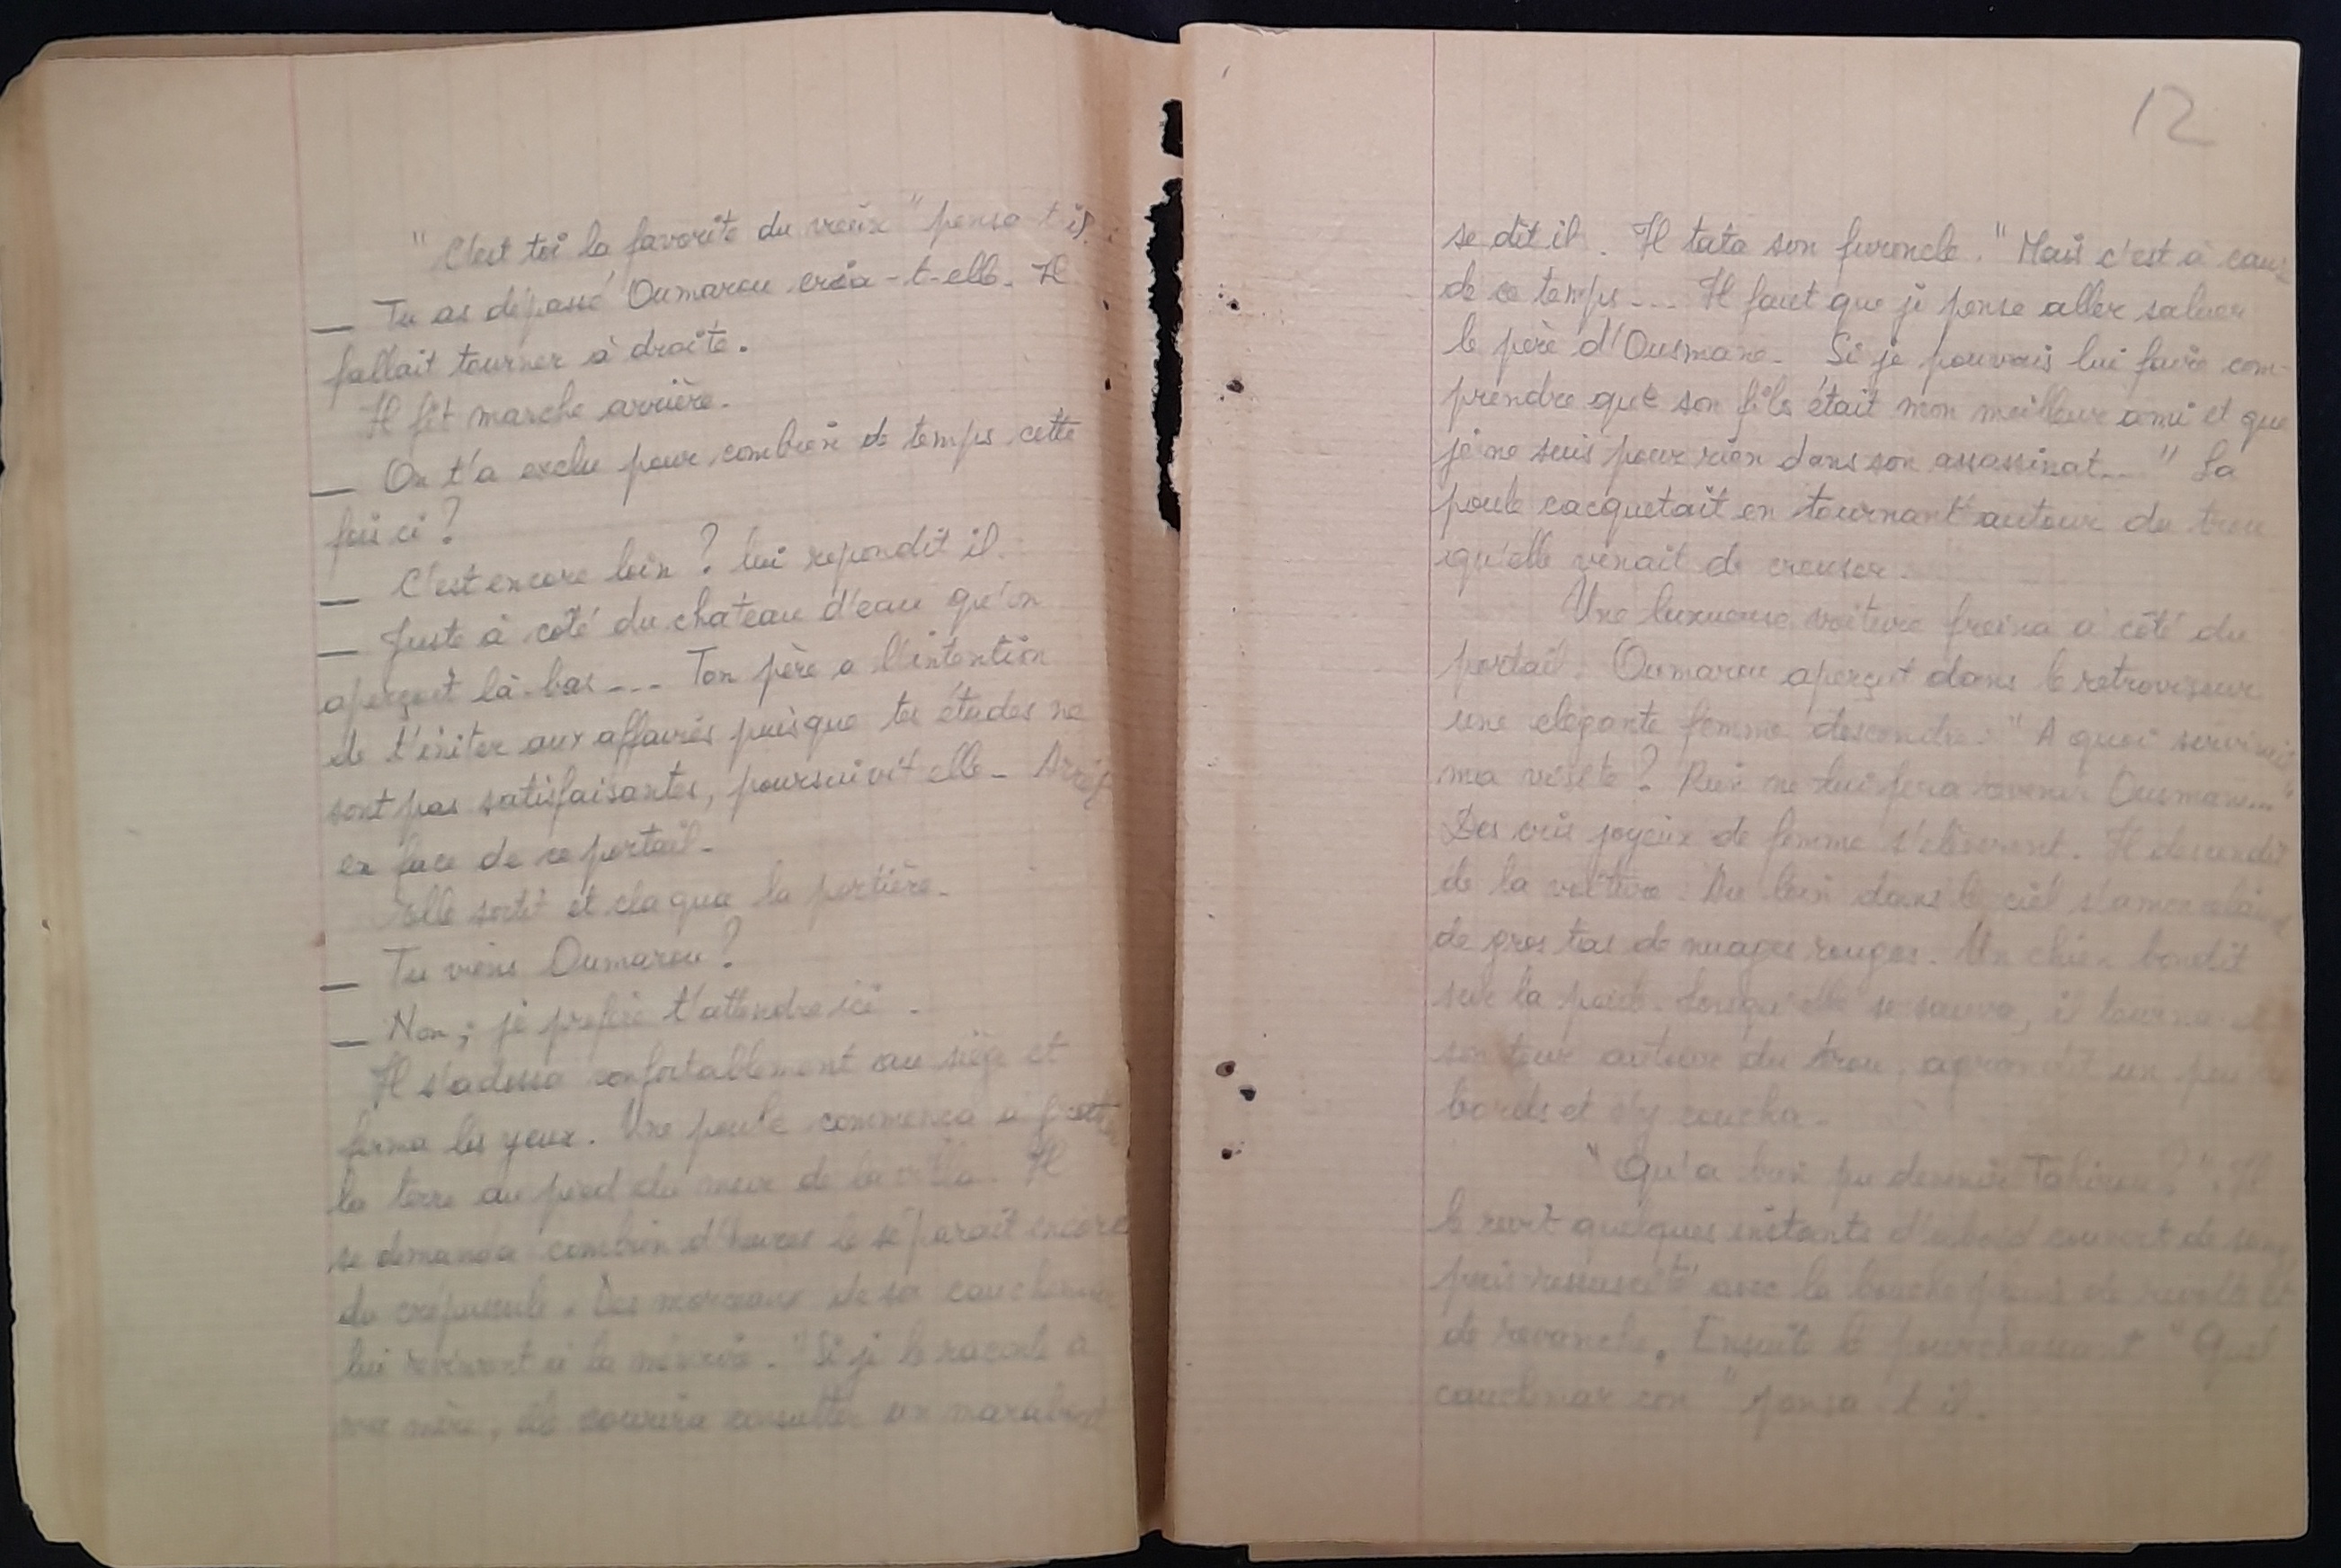 "C'est toi la favorite du vieux" pensa t il.
— Tu as dépassé Oumarou cria-t-elle. Il
fallait tourner à droite.
Il fit marche arrière.
— On t'a exclu pour combien de temps cette
fois ci ?
— C'est encore loin ? lui repondit il.
— Juste à côté du chateau d'eau qu'on
aperçoit là-bas... Ton père a l'intention
de t'initer aux affaires puisque tes études ne
sont pas satisfaisantes, poursuivit elle. Arrête
en face de ce portail.
Elle sortit et claqua la portière.
— Tu viens Oumarou ?
— Non ; je prefère t'attendre ici.
Il s'adossa confortablement au siège et
ferma les yeux. Une poule commença à gratter
la terre au pied du mur de la villa. Il
se demanda combien d'heures le séparait encore
du crépuscule. Des morceaux de sa cauchemar
lui revinrent à la mémoire. "Si je le raconte à
ma mère, elle courira consulter un marabout
12
se dit il. Il tata son furoncle. "Mais c'est à cause
de ce temps... Il faut que je pense aller saluer
le père d'Ousmane. Si je pouvais lui faire com-
prendre que son fils était mon meilleur ami et que
je ne suis pour rien dans son assassinat..." La
poule cacquetait en tournant autour du trou
qu'elle venait de creuser.
Une luxueuse voiture freina à côté du
portail. Oumarou aperçut dans le retroviseur
une elégante femme descendre. "A quoi servirait
ma visite ? Rien ne lui fera revenir Ousmane..."
Des cris joyeux de femme s'élevèrent. Il descendit
de la voiture. Au loin dans le ciel s'amoncelaient
de gros tas de nuages rouges. Un chien bondit
sur la poule. Lorsqu'elle se sauva, il tourna à
son tour autour du trou, agrandit un peu
bords et s'y coucha.
"Qu'a bien pu devenir Tahirou ?". Il
le revit quelques instants d'abord couvert de sang
puis ressuscité avec la bouche pleine de revolte et
de revanche. Ensuite le pourchassant "Quel
cauchemar con" pensa t il.